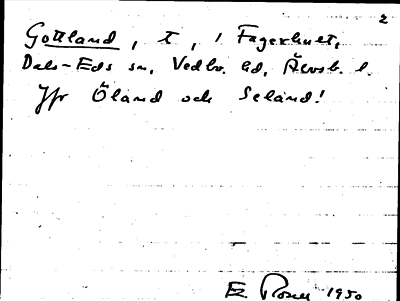 2
Gottland, t, i Fagerhult,
Dals-Eds sn, Vedbo hd, Älvsb. l.
Jfr Öland och Seland!
E. Rosell 1950